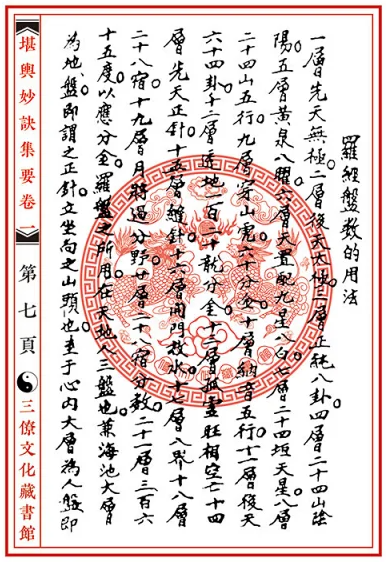 羅經盤数的用法
一層先天無極二層後天太極三層正純八卦四層二十四山陰
陽五層黃泉八曜六層天置配九星八白七層二十四垣天星八層
二十四山五行九層穿山虎六十分金十層納音五行十一層後天
六十四卦十二層透地一百二十龍分金十三層孤虛旺相空亡十四
層先天正針十五層縫針十六層開門放水十七層入界十八層
二十八宿十九層月將過分野廿層二十八宿分数二十一層三百六
十五度以應分金羅盤之所用在天地人三盤也兼海池大層
為地盤即謂之正針立坐向之山頭也至于心內大層為人盤即
堪輿妙訣集要卷一
第七頁
三僚文化藏書館